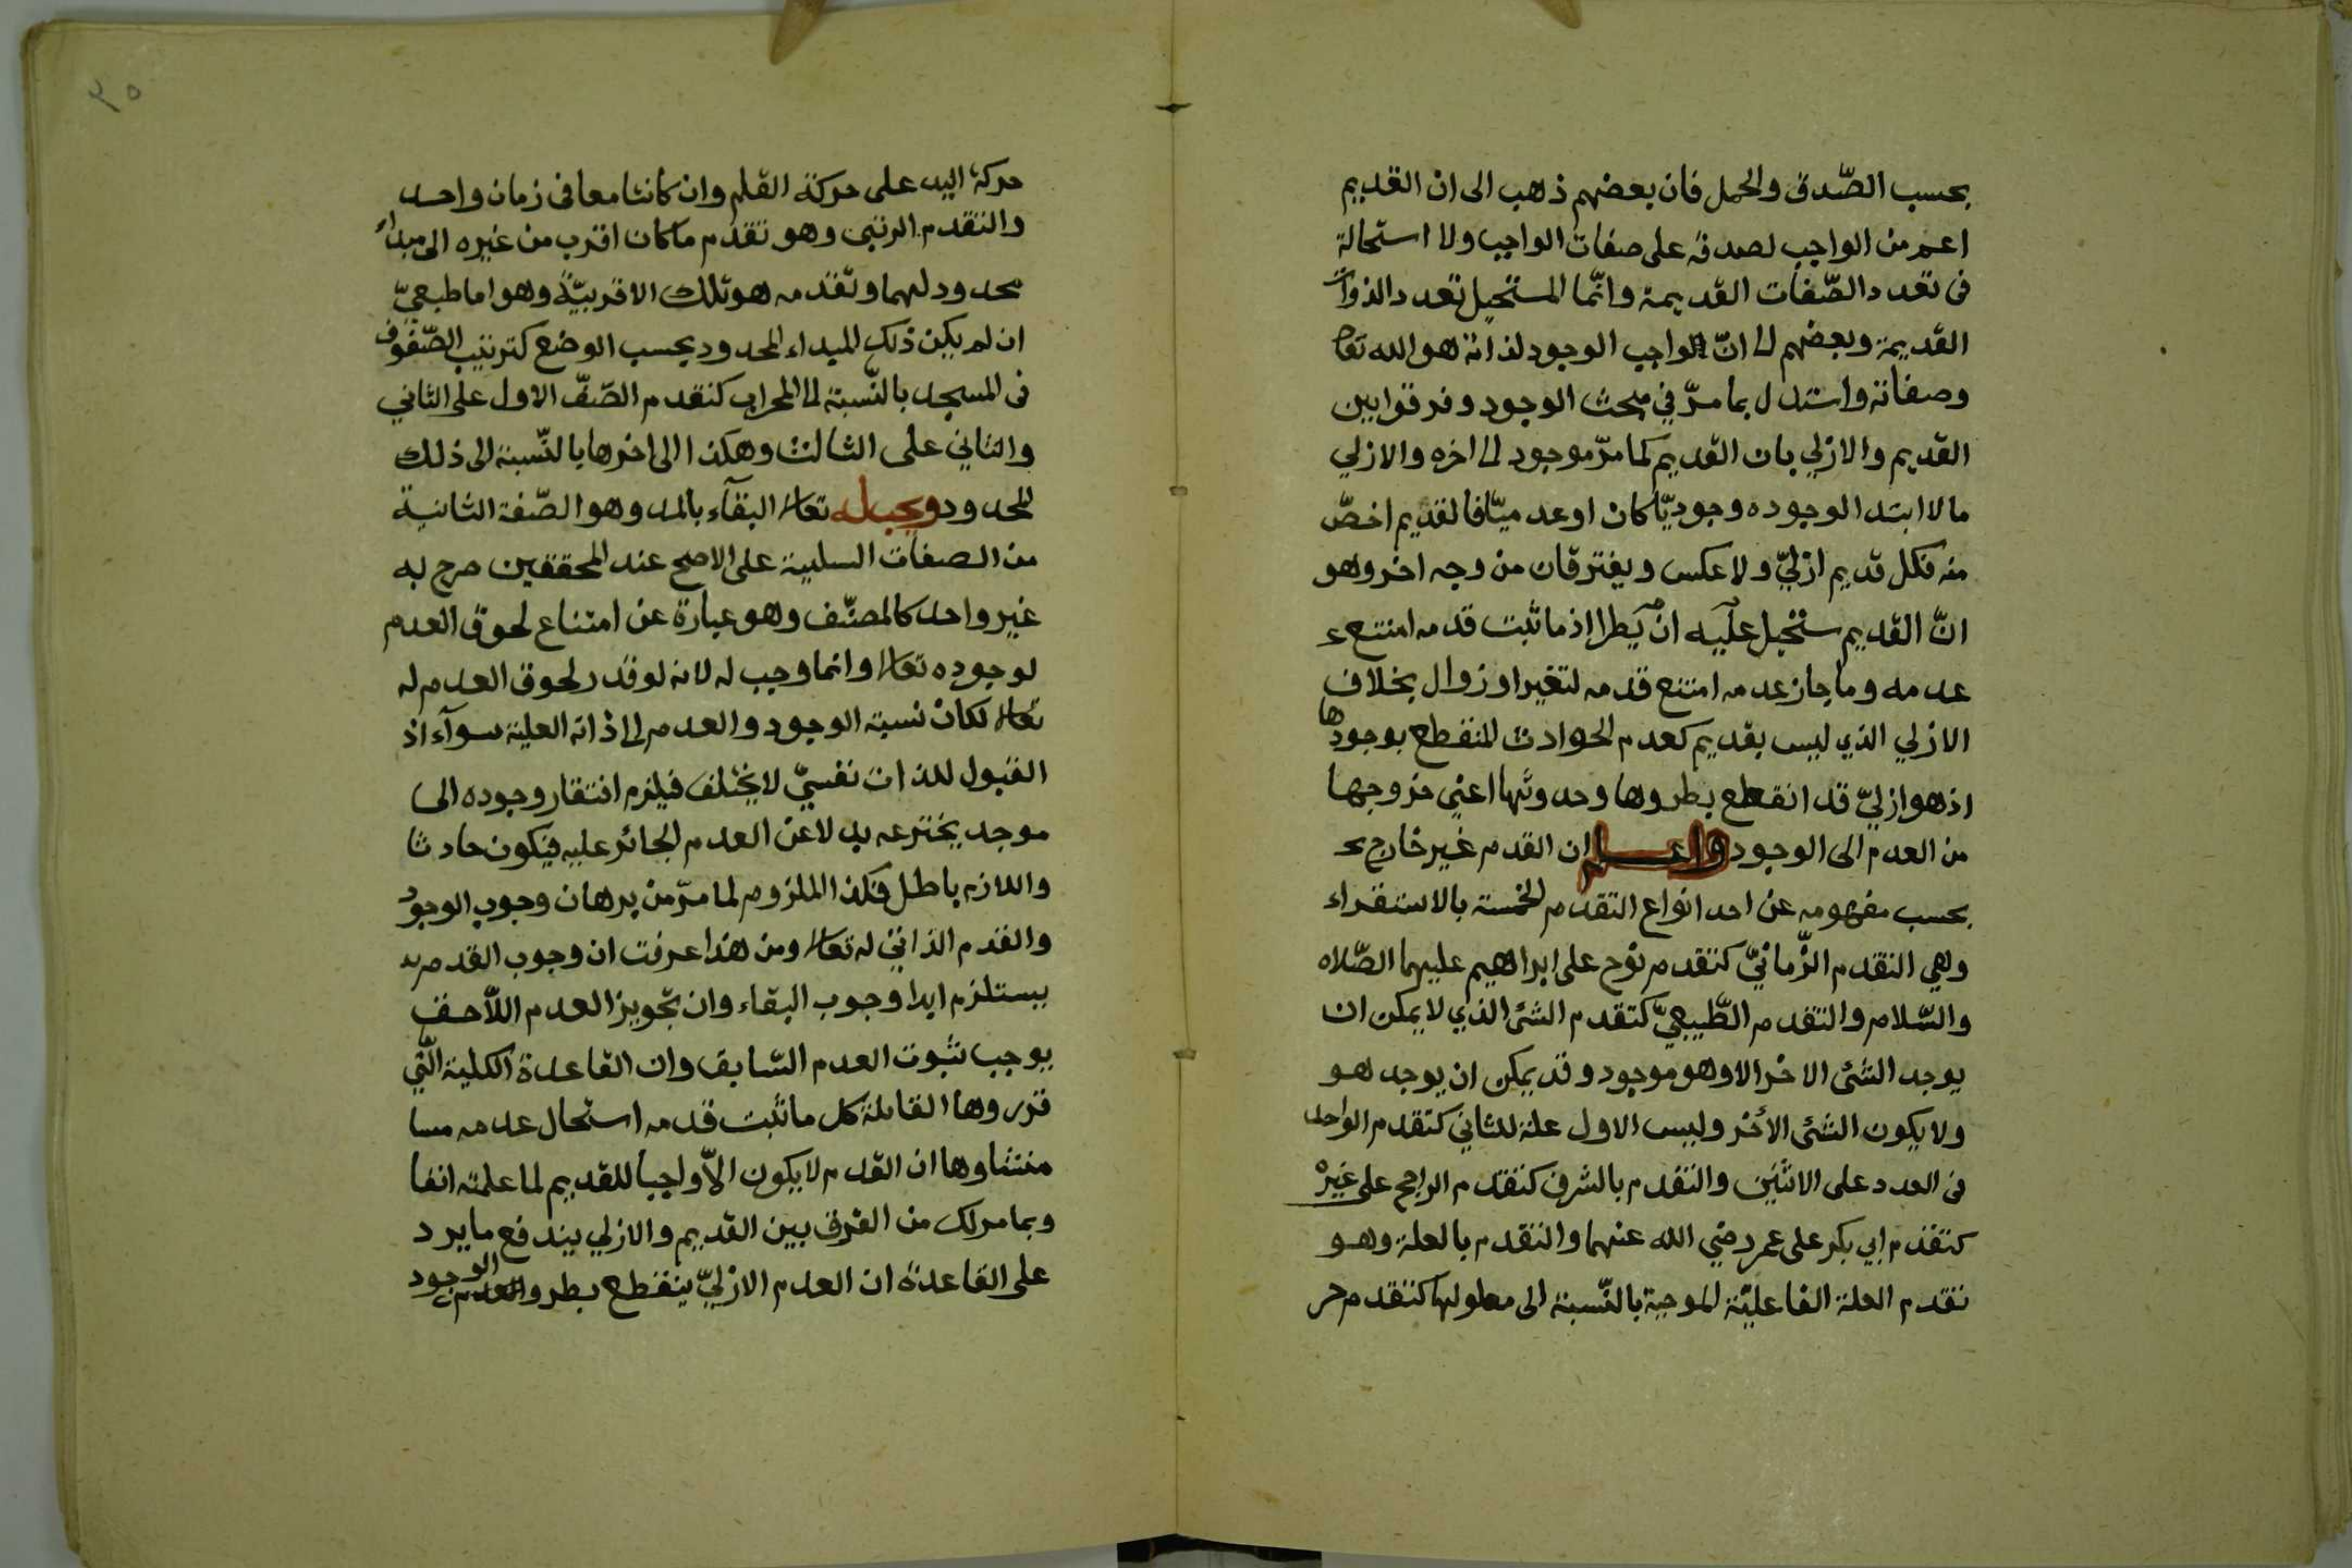 بحسب الصّدق والحمل فان بعضهم ذهب الى ان القديم
اعم من الواجب لصدقه على صفات الواجب ولا استحالة
فى تعدد الصّفات القديمة وانّما المستحيل تعدد الذوات
القديمة وبعضهم الى انّ الواجب الوجود لذاته هو الله تعا
وصفاته واستدل بما مرّ في مبحث الوجود وفرقوا بين
القديم والازلي بان القديم كما مرّ موجود الى اخره والازلي
مالا ابتدا لوجوده وجوديّا كان او عدميّا فالقديم اخصّ
منه فكل قديم ازليّ ولا عكس ويفترقان من وجه اخر وهو
انّ القديم ستحيل عليه ان يطرا اذ ما ثبت قدمه امتنع ع
عدمه وما جاز عدمه امتنع قدمه لتغير او زوال بخلاف
الازلي الذي ليس بقديم كعدم الحوادث المنقطع بوجودها
اذ هو ازليّ قد انقطع بطروها وحدوثها اعني خروجها
من العدم الى الوجود واعلم ان القدم غير خارج ع
بحسب مفهومه عن احد انواع التقدم الخمسة بالاستقراء
وهي التقدم الزّمانيّ كتقدم نوح على ابراهيم عليهما الصّلاه
والسّلام والتقدم الطّبيعيّ كتقدم الشئ الذي لا يمكن ان
يوجد الشئ الاخر الا وهو موجود وقد يمكن ان يوجد هو
ولا يكون الشئ الأخر وليس الاول علة للثاني كتقدم الواحد
فى العدد على الاثنين والتقدم بالشرف كتقدم الراجح على غيره
كتقدم ابي بكر على عمر رضي الله عنهما والتقدم بالعلة وهو
تقدم العلة الفاعليّة الموجبة بالنّسبة الى معلولها كتقدم حر
٣٥
حركة اليد على حركة القلم وان كانتا معا فى زمان واحد
والتقدم الرتبى وهو تقدم ما كان اقرب من غيره الى مبداء
محدود لهما وتقدمه هو تلك الاقربيّة وهو اما طبعيّ
ان لم يكن ذلك المبداء المحدود بحسب الوضع كترتيب الصّفوف
فى المسجد بالنّسبة الى المحراب كتقدم الصّفّ الاول على الثاني
والثاني على الثالث وهكذا الى اخرها بالنّسبة الى ذلك
المحدود ويجب له تعالى البقآء بالمد وهو الصّفة الثانية
من الصفات السلبية على الاصح عند المحققين صرح به
غير واحد كالمصنّف وهو عبارة عن امتناع لحوق العدم
لوجوده تعالى وانما وجب له لانه لو قدر لحوق العدم له
تعالى لكان نسبة الوجود والعدم الى ذاته العلية سوآء اذ
القبول للذات نفسيّ لا يختلف فيلزم افتقار وجوده الى
موجد يخترعه بدلا عن العدم الجائز عليه فيكون حادثا
واللازم باطل فكذا الملزوم لما مرّ من برهان وجوب الوجود
والقدم الذاتي له تعالى ومن هذا عرفت ان وجوب القدم
يستلزم ابدا وجوب البقاء وان تجويز العدم اللّاحق
يوجب ثبوت العدم السّابق وان القاعدة الكلية الّتي
قرروها القابلة كل ما ثبت قدمه استحال عدمه مسا
منشاوها ان القدم لا يكون الاّ واجبا للقديم لما علمته انفا
وبما مر لك من الفرق بين القديم والازلي يندفع ما يرد
على القاعدة ان العدم الازليّ ينقطع بطرو الوجود